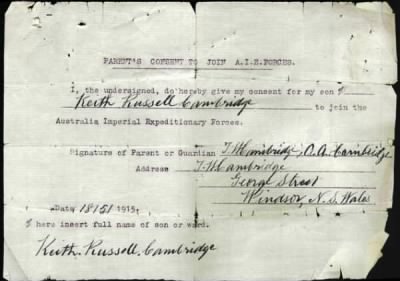 PARENT'S CONSENT TO JOIN A.I.E.FORCES.
I, the undersigned, do hereby give my consent for my son %
Keith Russell Cambridge to join the
Australia Imperial Expeditionary Forces.
Signature of Parent or Guardian T.W Cambridge, O.A. Cambridge
Address T.W Cambridge
George Street
Windsor, N.S. Wales
Date 18/5/ 1915.
% here insert full name of son or ward.
Keith. Russell. Cambridge